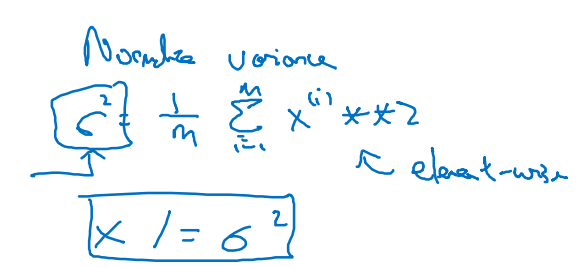 Normalize variance
σ² = 1/m Σ_{i=1}^{m} x^{(i)} **2
↖ element-wise
x /= σ²